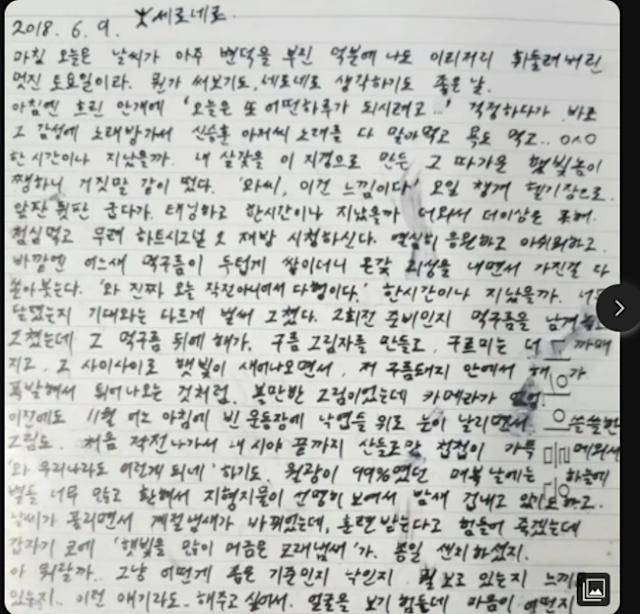 2018. 6. 9. 세로네로.
마침 오늘은 날씨가 아주 변덕을 부린 덕분에 나도 이리저리 휘둘려버린
멋진 토요일이라. 뭔가 써보기도, 네로네로 생각하기도 좋은 날.
아침엔 흐린 안개에 '오늘은 또 어떤하루가 되시려고...' 걱정하다가 바로
그 감성에 노래방가서 신승훈 아저씨 노래를 다 말아먹고 욕도 먹고.. ㅇㅅㅇ
한시간이나 지났을까. 내 살갗을 이 지경으로 만든 그 따가운 햇빛놈이
쨍하니 거짓말 같이 떴다. '와씨, 이건 느낌이다' 오일 챙겨 헬기장으로.
앞판 뒷판 굽다가. 태닝하고 한시간이나 지났을까 더워서 더이상은 포기.
점심먹고 무려 하트시그널 2 재방 시청하신다. 열심히 응원하고 아쉬워하고.
바깥엔 어느새 먹구름이 두텁게 쌓이더니 온갖 괴성을 내면서 가진걸 다
쏟아붓는다. '와 진짜 오늘 작전아니어서 다행이다.' 한시간이나 지났을까.
달랬는지 기대와는 다르게 벌써 그쳤다. 2회전 준비인지 먹구름을 남겨
그쳤는데 그 먹구름 뒤에 해가. 구름 그림자를 만들고, 구르미는 더 까매
지고, 그 사이사이로 햇빛이 새어나오면서, 저 구름돼지 안에서 해가
폭발해서 튀어나오는 것처럼. 볼만한 그림이었는데 카메라가 없엉.
이전에도 11월 어느 아침에 빈 운동장에 낙엽들 위로 눈이 날리면서 쓸쓸한
그림도. 처음 작전나가서 내 시야 끝까지 산들로만 첩첩이 가득 메워서
'와 우리나라도 이런게 되네' 하기도. 월광이 99%였던 매복 날에는 하늘에
별들 너무 많고 환해서 지형지물이 선명히 보여서 밤새 겁내고 있기도하고.
날씨가 풀리면서 계절냄새가 바뀌었는데, 훈련 받는다고 힘들어 죽겠는데
갑자기 코에 '햇빛을 많이 머금은 모래냄새'가. 종일 센치하셨지.
아 뭐랄까.. 그냥 어떻게 좋은 기준인지 낙인지 뭘 보고 있는지 느끼고
있는지.. 이런 얘기라도.. 해주고 싶어서. 얼굴을 보기 힘든데 마음이 어떤지